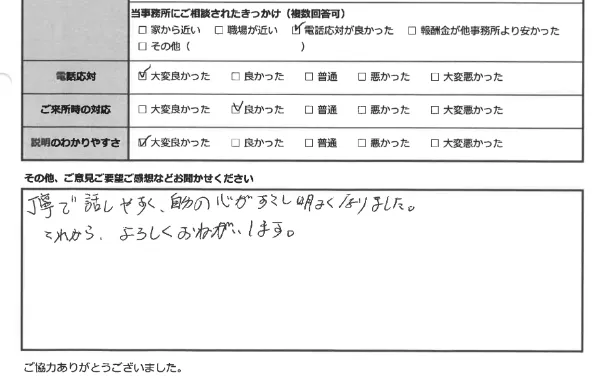 当事務所にご相談されたきっかけ（複数回答可）
□ 家から近い □ 職場が近い ☑ 電話応対が良かった □ 報酬金が他事務所より安かった
□ その他（ ）
電話応対 ☑ 大変良かった □ 良かった □ 普通 □ 悪かった □ 大変悪かった
ご来所時の対応 □ 大変良かった ☑ 良かった □ 普通 □ 悪かった □ 大変悪かった
説明のわかりやすさ ☑ 大変良かった □ 良かった □ 普通 □ 悪かった □ 大変悪かった
その他、ご意見ご要望ご感想などお聞かせください
丁寧で話しやすく、自分の心がすこし明るくなりました。
これから、よろしくおねがいします。
ご協力ありがとうございました。